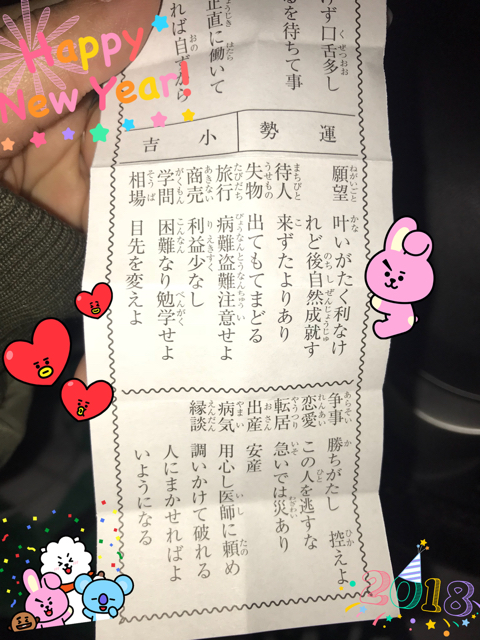 Happy
New Year!
けず口舌多し
るを待ちて事
正直に働いて
れば自ずから
運勢 小吉
願望 叶いがたく利なけ
れど後自然成就す
待人 来ずたよりあり
失物 出てもてまどる
旅行 病難盗難注意せよ
商売 利益少なし
学問 困難なり勉学せよ
相場 目先を変えよ
争事 勝ちがたし 控えよ
恋愛 この人を逃すな
転居 急いでは災あり
出産 安産
病気 用心し医師に頼め
縁談 調いかけて破れる
人にまかせればよ
いようになる
2018